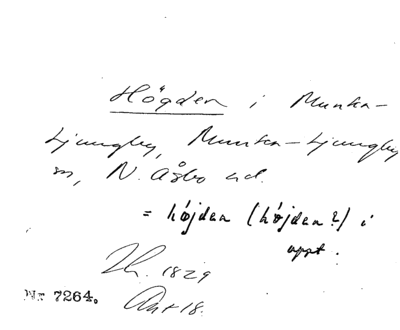 Högden i Munka-
Ljungby, Munka-Ljungby
sn, N. Åsbo hd.
= höjden (höjden?) i
uppt.
Lh. 1829
Akt 18.
Nr 7264.